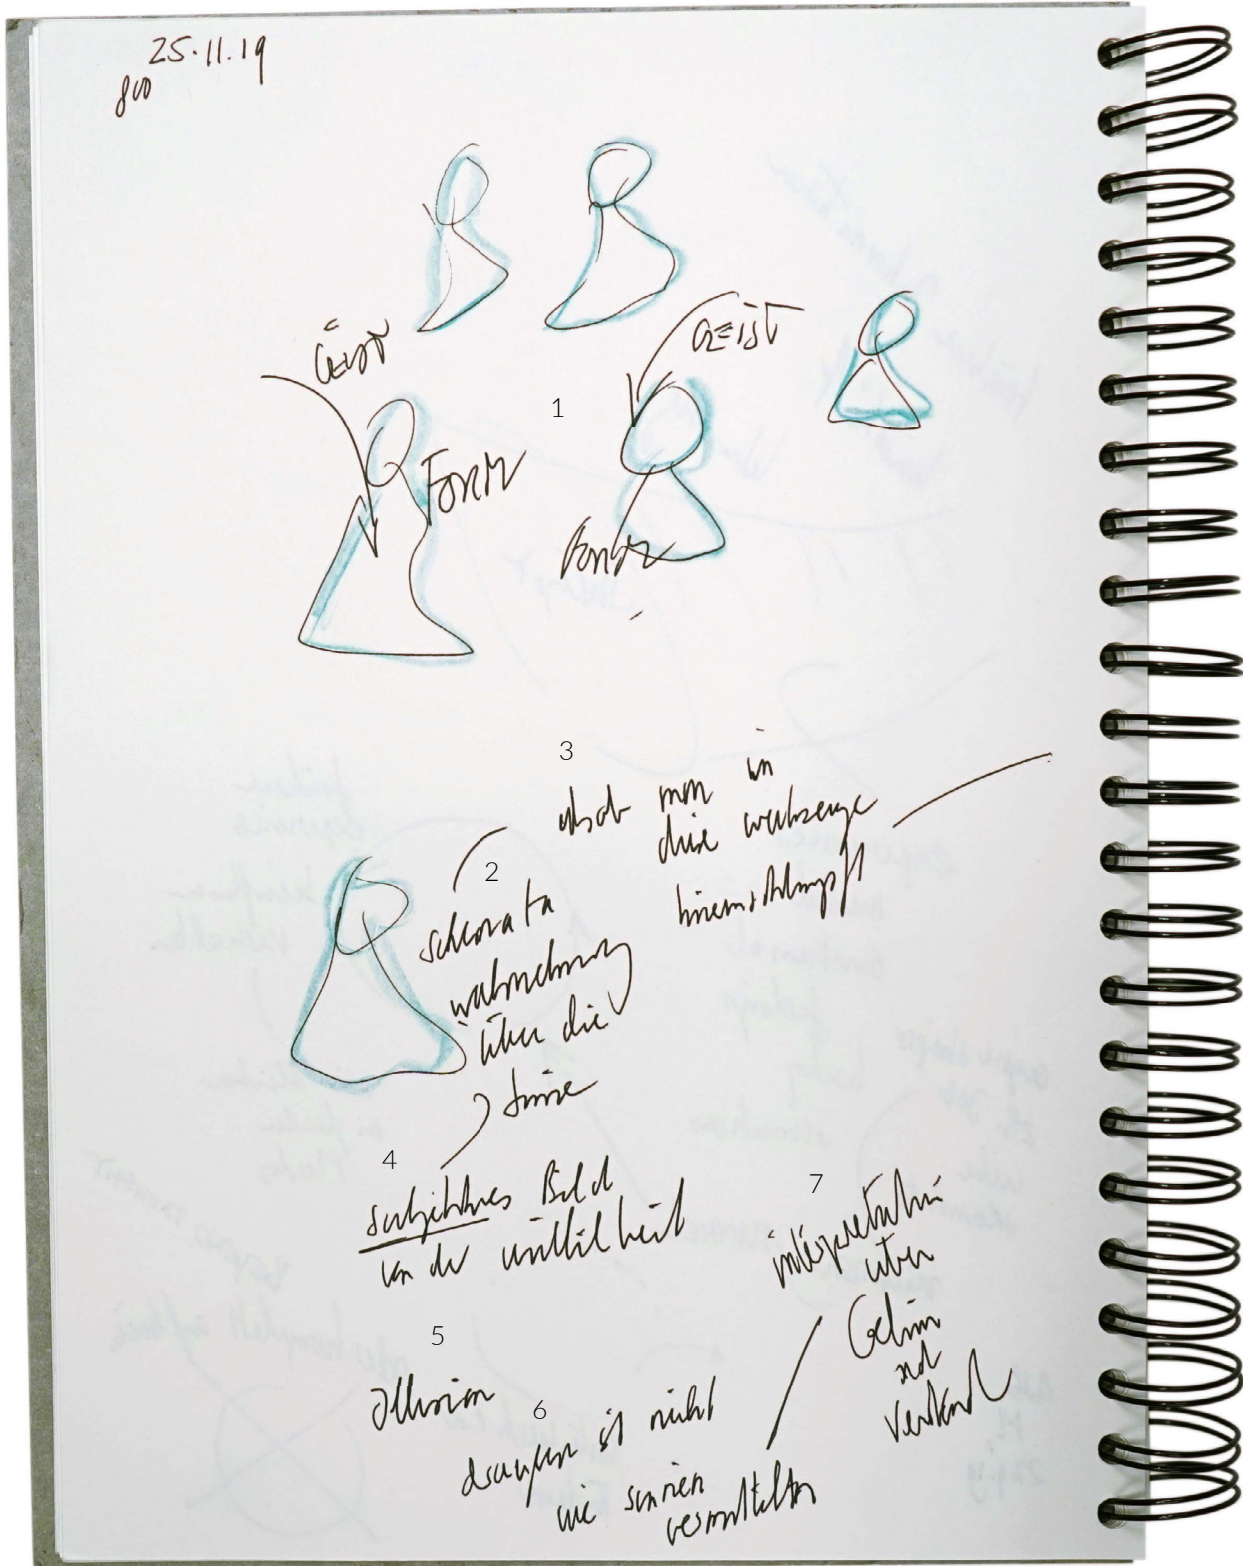 25.11.19
800
GEIST
GEIST
1
FORM
FORM
3
als ob man in
diese werkzeuge
hineinschlüpft
2
wahrnehmung
über die
Sinne
4
subjektives Bild
von der wirklichkeit
7
interpretation
über
Gehirn
und
Verstand
5
Illusion
6
draußen ist nicht
wie sinnen
vermitteln